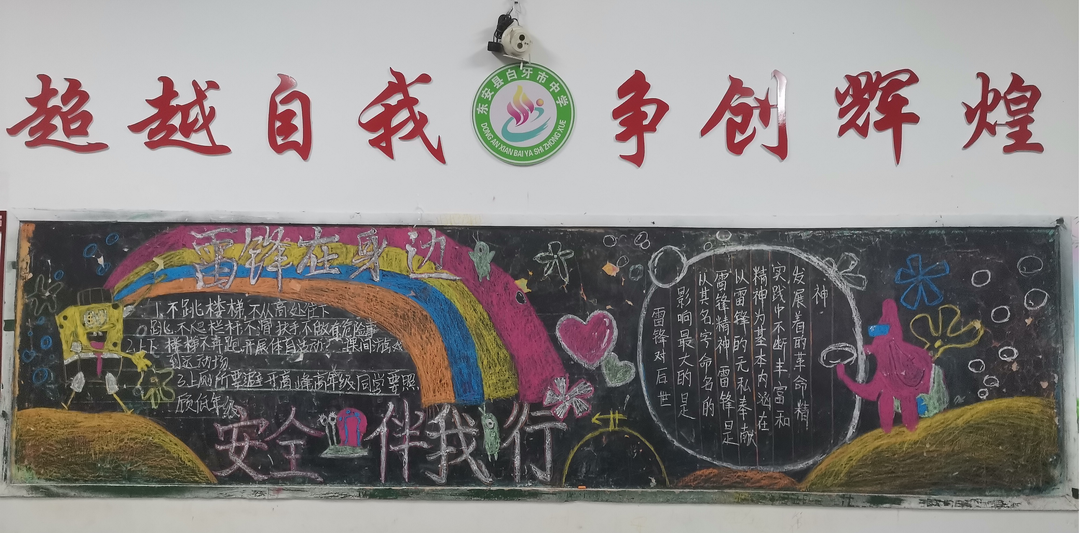 超越自我 争创辉煌
东安县白牙市中学
DONG AN XIAN BAI YA SHI ZHONG XUE
雷锋在身边
1.不跳楼梯 不从高处往下
跳 不心栏杆不滑扶手不做有危险事
2.上下楼梯不奔跑,开展体育活动,课间游戏
到运动场
3.上厕所要避开高峰高年级同学要照
顾低年级
安全伴我行
神
发展着的革命精
实践中不断丰富和
精神为基本内涵在
以雷锋的无私奉献
雷锋精神雷锋是
以其名字命名的
影响最大的是
雷锋对后世